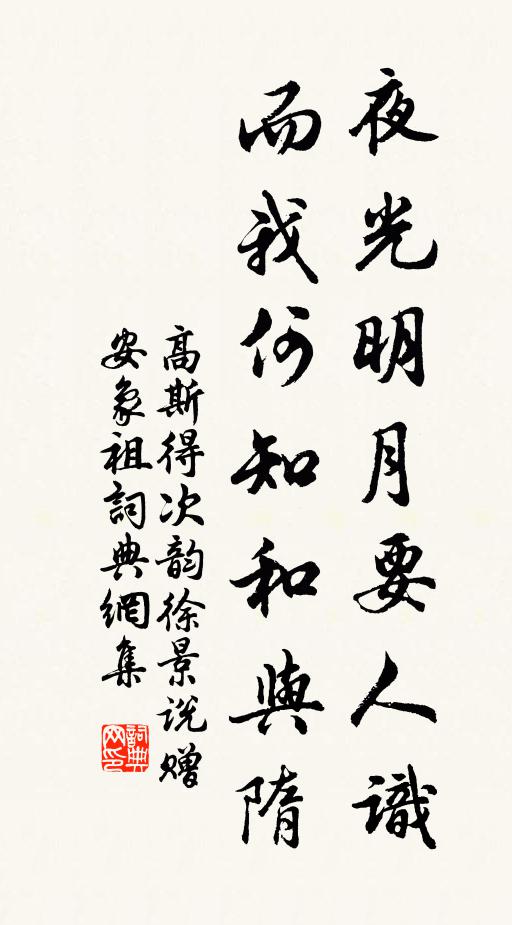 夜光明月要人識
而我何知和與隋
高斯得次韵徐景说赠
安象祖詞典網集
詞典
网印